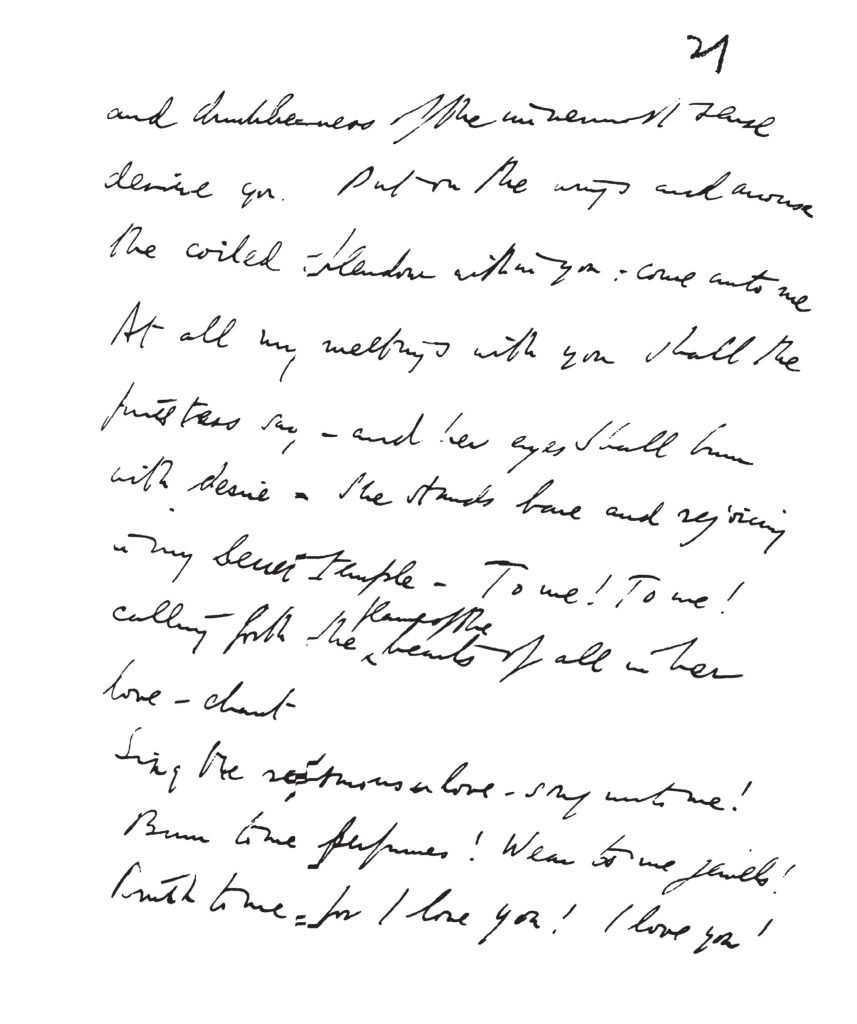 21
and drunkenness of the innermost sense
desire you. Put on the wings and arouse
the coiled splendour within you : come unto me
At all my meetings with you shall the
priestess say – and her eyes shall burn
with desire – she stands bare and rejoicing
in my secret temple – To me! To me!
flame of the
calling forth the hearts of all in her
love – chant
Sing the love – song unto me!
Burn to me perfumes! Wear to me jewels!
to me – for I love you! I love you!